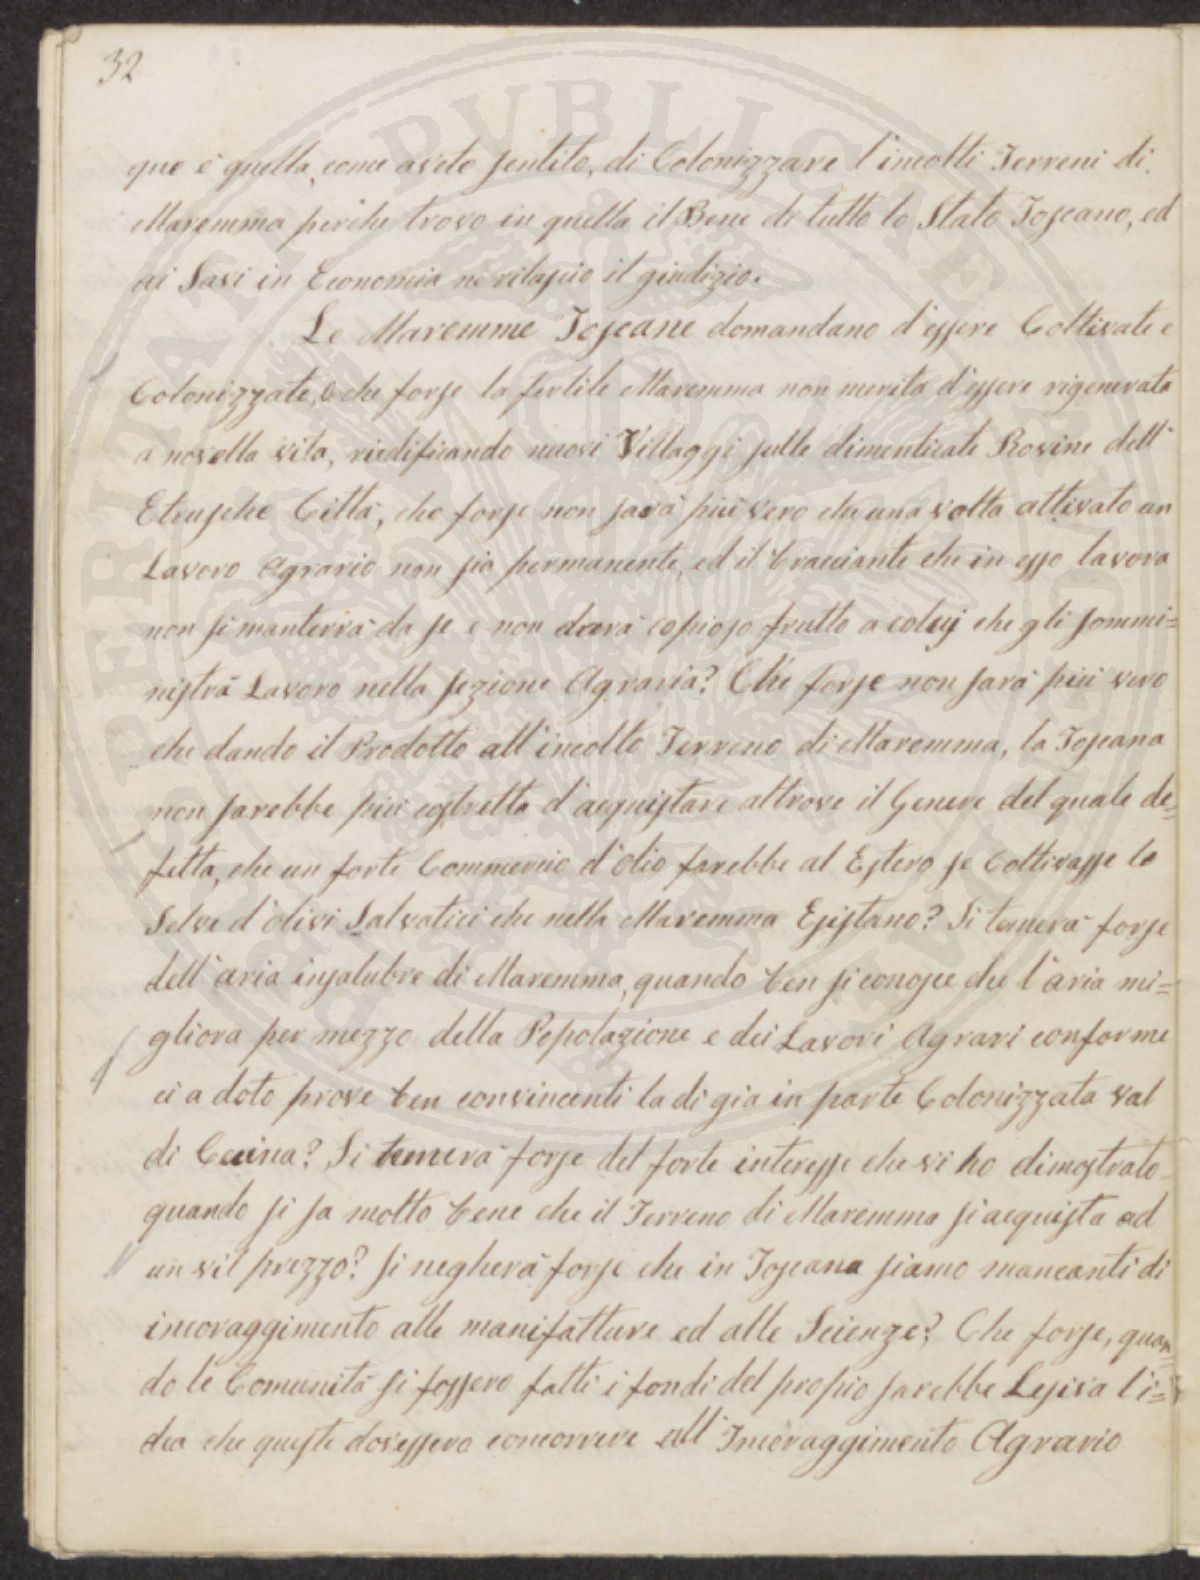 32
que è quella, come avete sentito, di Colonizzare l'incolti Terreni di
Maremma perche trovo in quella il Bene di tutto lo Stato Toscano, ed
ai Savi in Economia ne rilascio il giudizio.
Le Maremme Toscane domandano d'essere Coltivate e
Colonizzate, e che forse la fertile Maremma non merita d'essere rigenerata
a novella vita, riedificando nuovi Villaggi sulle dimenticate Rovine dell'
Etrusche Città, che forse non sarà più vero che una volta attivato un
Lavoro Agrario non sia permanente, ed il bracciante che in esso lavora
non si manterrà da se e non darà copioso frutto a colui che gli sommi=
nistra Lavoro nella sezione Agraria? Che forse non sarà più vero
che dando il Prodotto all'incolto Terreno di Maremma, la Toscana
non sarebbe più costretta d'acquistare altrove il Genere del quale de=
fetta, che un forte Commercio d'olio farebbe al Estero se Coltivasse le
Selve d'olivi Salvatici che nella Maremma Esistano? Si temerà forse
dell'aria insalubre di Maremma, quando ben si conosce che l'aria mi=
gliora per mezzo della Popolazione e dei Lavori Agrari conforme
ci a doto prove ben convincenti la di gia in parte Colonizzata val
di Cecina? Si temerà forse del forte interesse che vi ho dimostrato
quando si sa molto bene che il Terreno di Maremma si acquista ad
un vil prezzo? Si negherà forse che in Toscana siamo mancanti di
incoraggimento alle manifatture ed alle Scienze? Che forse, quan=
do le Comunità si fossero fatti i fondi del propio sarebbe Lesiva l'i=
dea che queste dovessero concorrere all'Incoraggimento Agrario
PUBLICAE